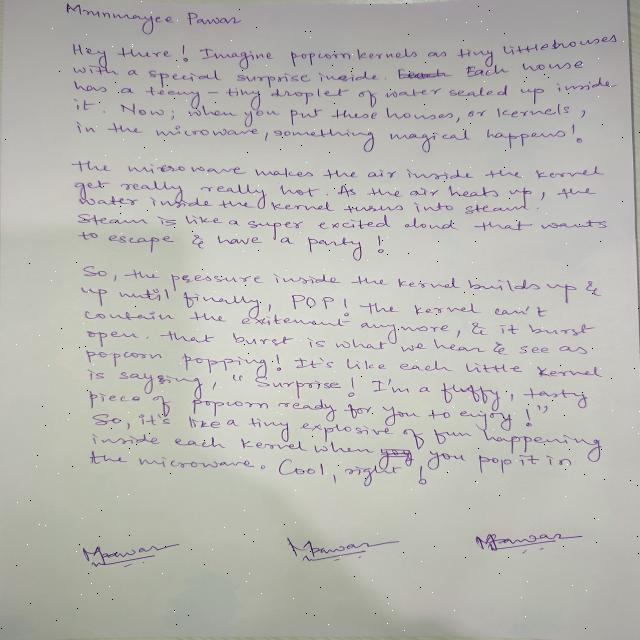 Mrunmayee Pawar
Hey there! Imagine popcorn kernels as tiny little houses
with a special surprise inside. Each house
has a teeny-tiny droplet of water sealed up inside
it. Now, when you put these houses, or kernels,
in the microwave, something magical happens!
The microwave makes the air inside the kernel
get really really hot. As the air heats up, the
water inside the kernel turns into steam.
Steam is like a super excited cloud that wants
to escape & have a party!
So, the pressure inside the kernel builds up &
up until finally, POP! The kernel can't
contain the exitement anymore, & it burst
open. That burst is what we hear & see as
popcorn popping! It's like each little kernel
is saysing, "Surprise! I'm a fluffy, tasty
piece of popcorn ready for you to enjoy!"
So, it's like a tiny explosive of fun happening
inside each kernel when you pop it in
the microwave. Cool, right!
MPawar MPawar MPawar